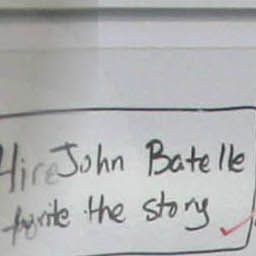 Hire John Batelle
to write the story